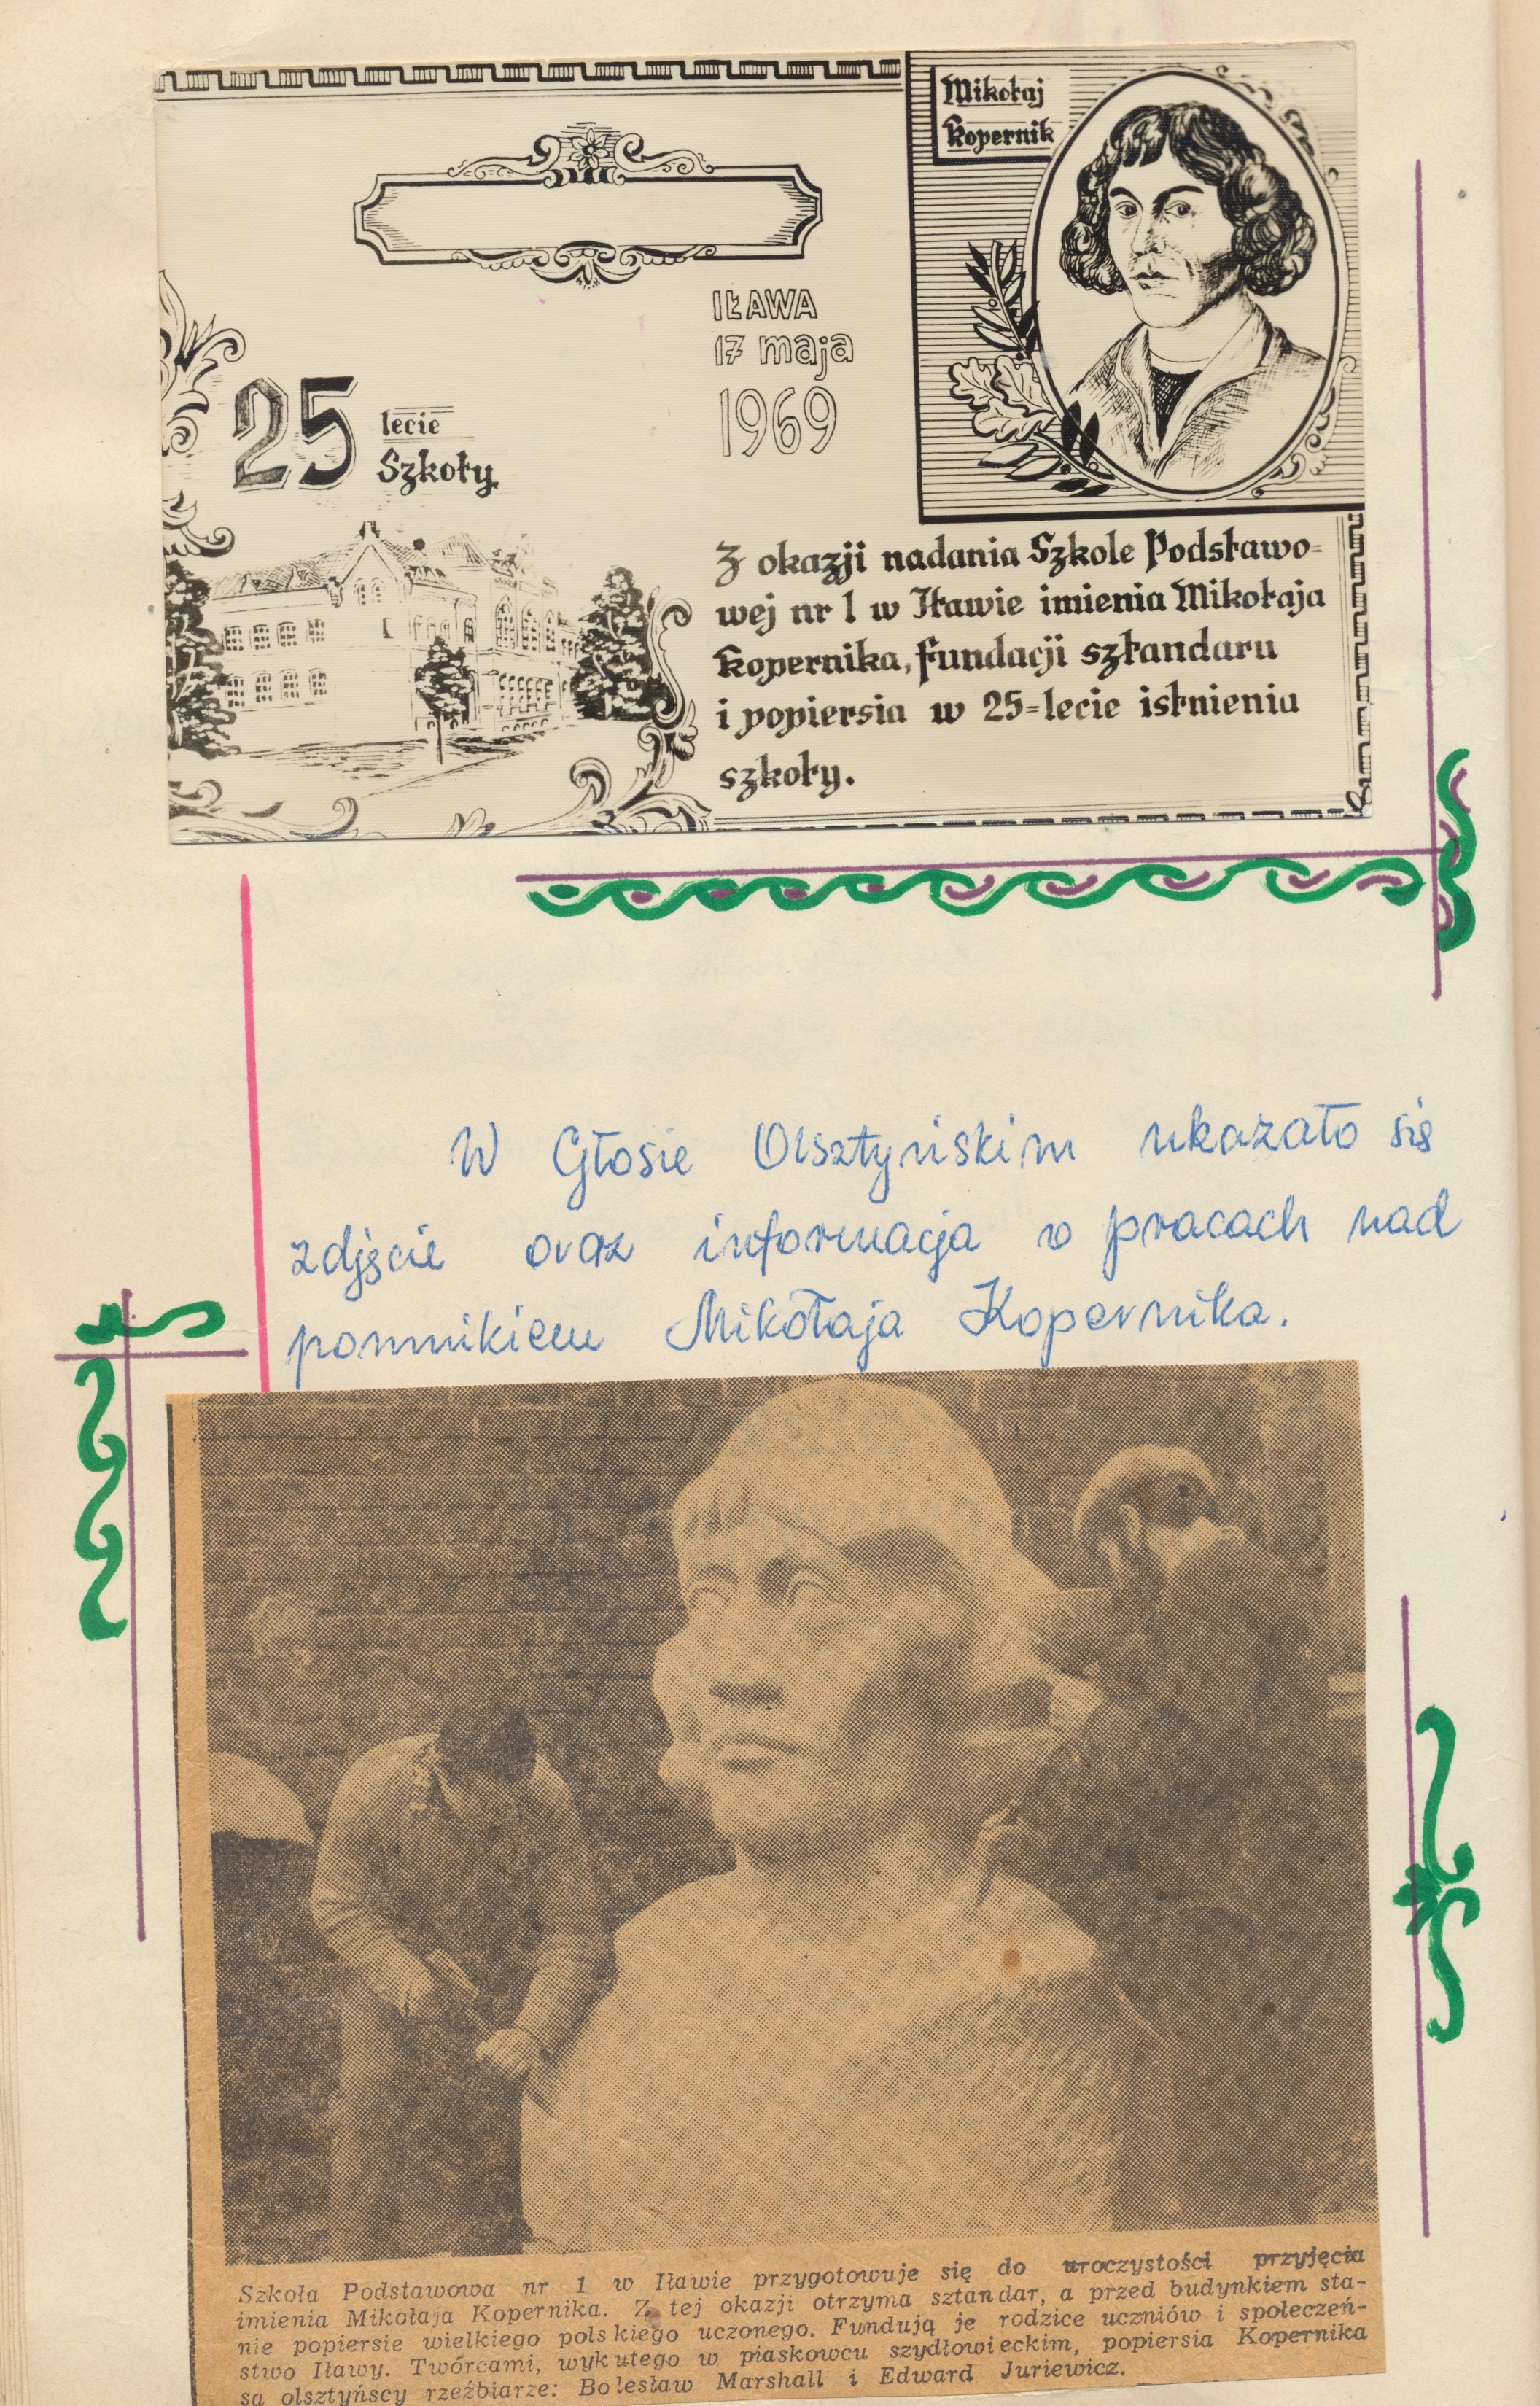 Mikołaj
Kopernik
IŁAWA
17 maja
1969
25
lecie
Szkoły
Z okazji nadania Szkole Podstawo=
wej nr 1 w Iławie imienia Mikołaja
Kopernika, fundacji sztandaru
i popiersia w 25=lecie istnienia
szkoły.
W Głosie Olsztyńskim ukazało się
zdjęcie oraz informacja o pracach nad
pomnikiem Mikołaja Kopernika.
Szkoła Podstawowa nr 1 w Iławie przygotowuje się do uroczystości przyjęcia
imienia Mikołaja Kopernika. Z tej okazji otrzyma sztandar, a przed budynkiem sta-
nie popiersie wielkiego polskiego uczonego. Fundują je rodzice uczniów i społeczeń-
stwo Iławy. Twórcami, wykutego w piaskowcu szydłowieckim, popiersia Kopernika
są olsztyńscy rzeźbiarze: Bolesław Marshall i Edward Juriewicz.